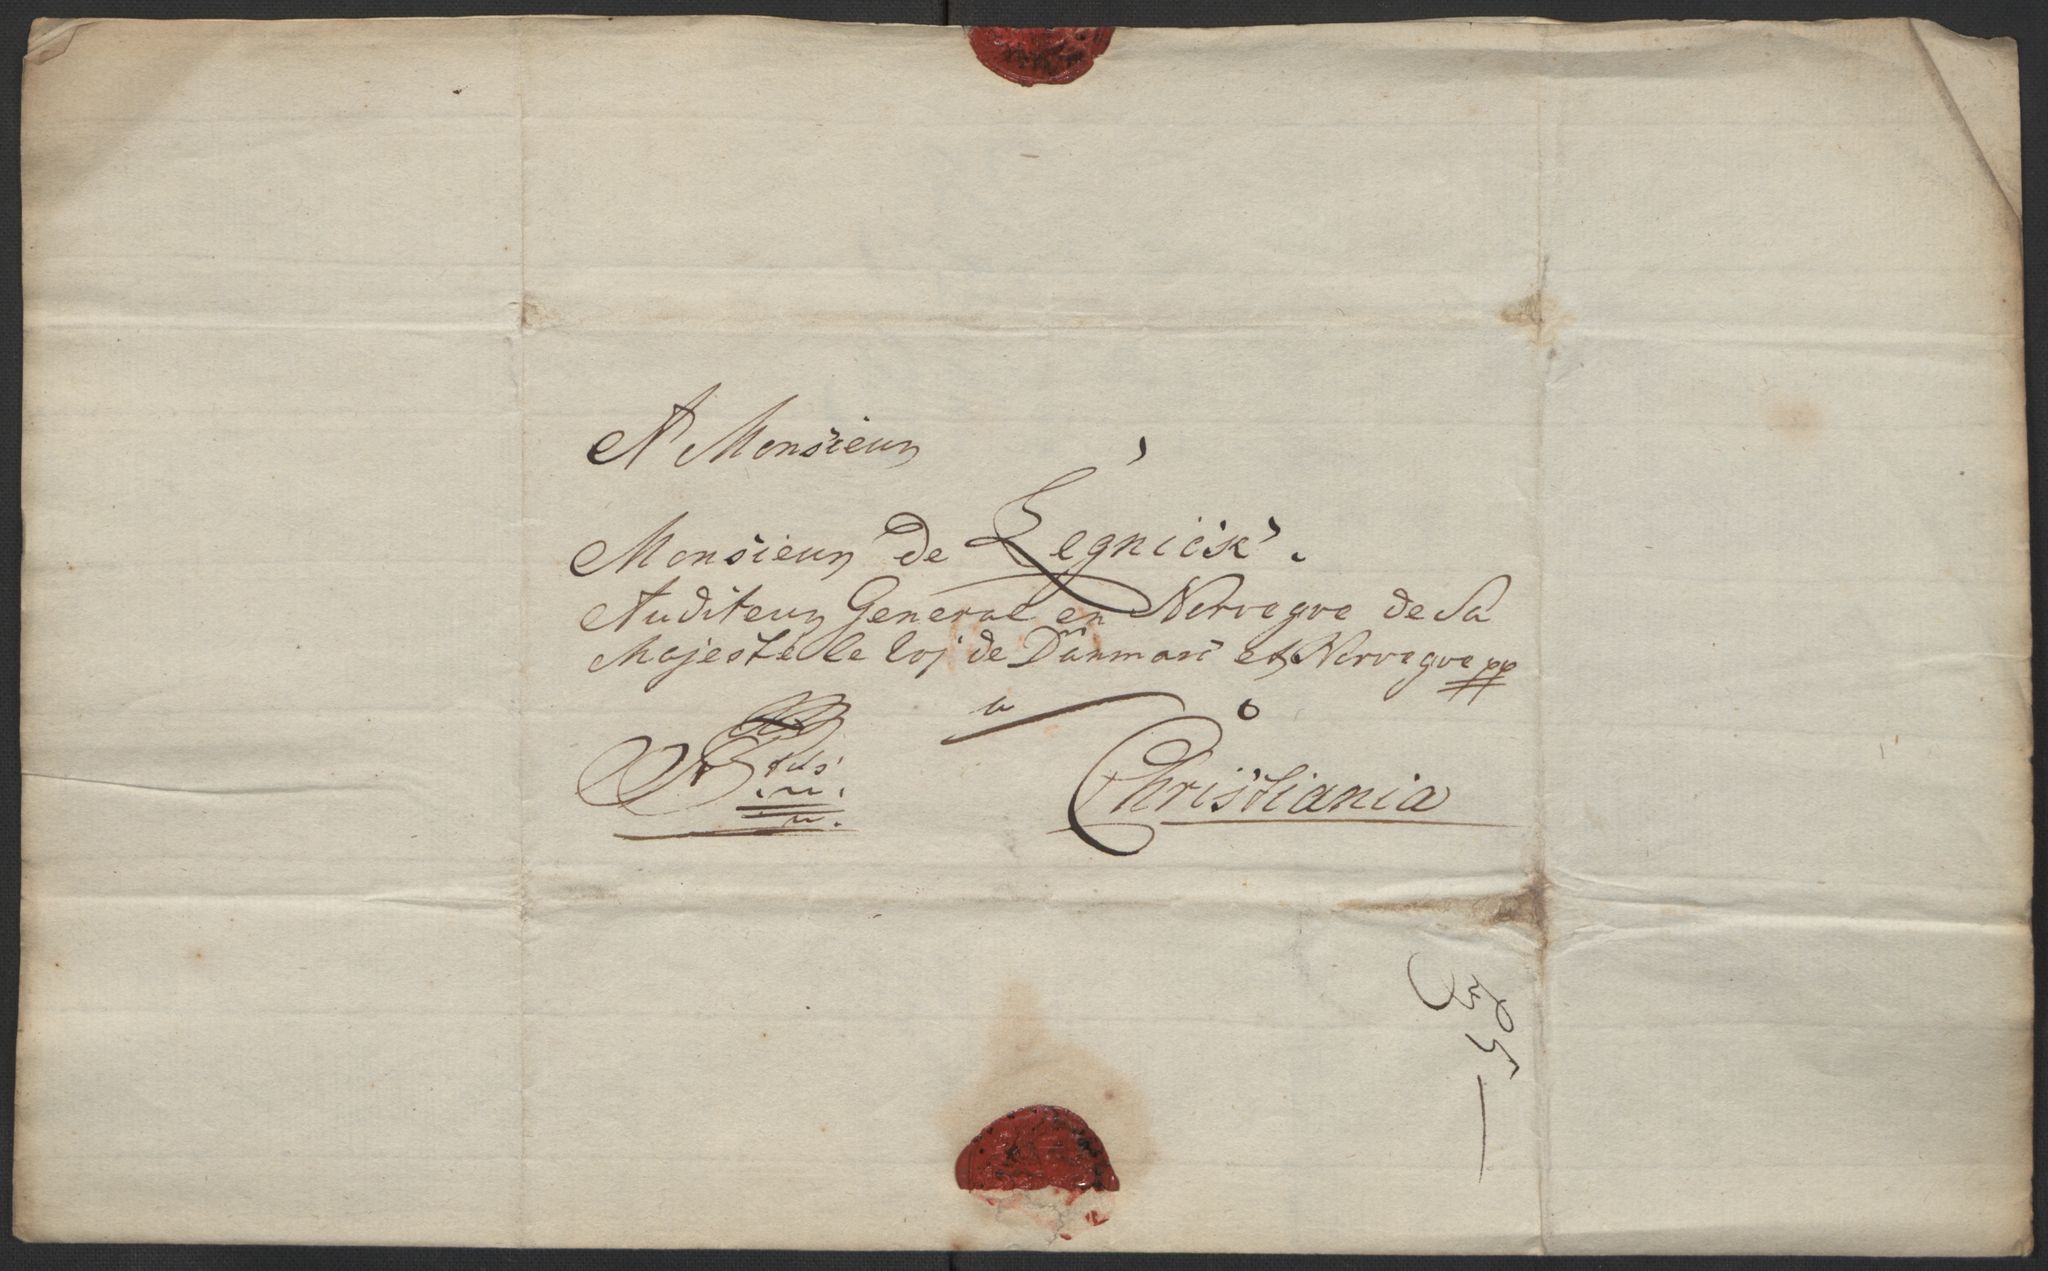 A Monsieur
Monsieur de Legnick.
Auditeur General en Norvegve de Sa
Majeste le roj de Danmarc et Norvegve pp
a
Christiania